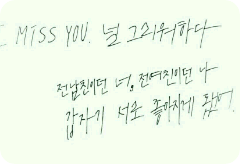 I MISS YOU. 널 그리워하다
전남친이던 너, 전여친이던 나
갑자기 서로 좋아지게 됐어.